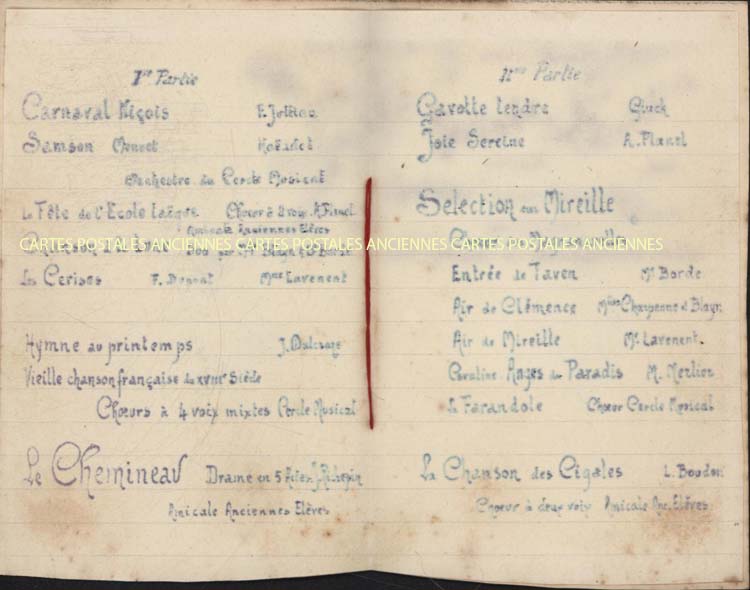 1re Partie
Carnaval Niçois
Samson Menuet Haëndel
Orchestre du Cercle Musical
La Fête de l'Ecole laïque Chœur à 2 voix
Amicale Anciennes Elèves
CARTES POSTALES ANCIENNES CARTES POSTALES ANCIENNES CARTES POSTALES ANCIENNES
Duo par
Les Cerises F. Dupont Mme Lavenent
Hymne au printemps J. Dalcroze
Vieille chanson française du XVIIIe Siècle
Chœurs à 4 voix mixtes Cercle Musical
Le Chemineau Drame en 5 Actes J. Richepin
Amicale Anciennes Elèves
IIme Partie
Gavotte tendre Gluck
Joie Sereine A. Planel
Selection sur Mireille
Entrée de Taven Me Borde
Air de Clémence Mlles Charpenne et Blayn
Air de Mireille Me Lavenent
Anges du Paradis M. Merlier
La Farandole Chœur Cercle Musical
La Chanson des Cigales L. Boudon
Chœur à deux voix Amicale Anc. Elèves